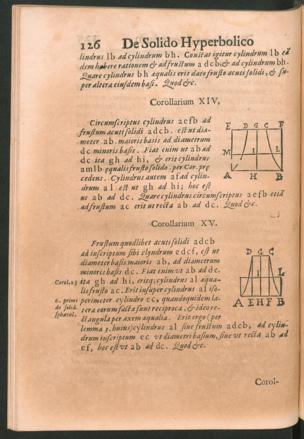 126 De Solido Hyperbolico
lindrus lb ad cylindrum bh. Constat igitur cylindrum lb
dem habere rationem & ad frustum adcb & ad cylindrum bh.
Quare cylindrus bh aequalis erit dato frusto acuti solidi, & su-
per altera eiusdem basi. Quod &c.
Corollarium XIV,
Circumscriptus cylindrus aefb ad
frustum acuti solidi adcb. est ut dia-
meter ab maioris basis ad diametrum
dc minoris basis. Fiat enim ut ab ad
dc ita gh ad hi, & erit cylindrus
amlb equalis frusto solido. per Cor. prę
cedens. Cylindrus autem af ad cylin-
drum al est ut gh ad hi; hoc est
ut ab ad dc. Quare cylindrus circumscriptus aefb
ad frustum ac erit ut recta ab ad dc. Quod &c.
E D G C F
M I L
A H B
Corollarium XV.
Frustum quodlibet acuti solidi adcb
ad inscriptum sibi cylindrum edcf, est ut
diameter basis maioris ab, ad diametrum
minoris basis dc. Fiat enim ut ab ad dc,
ita gh ad hi, eritq; cylindrus al aequa-
lis frusto ac. Erit insuper cylindrus al iso-
perimeter cylindro ec, quandoquidem la-
tera eorum facta sunt reciproca, & ideo re-
ctangula per axem aequalia. Erit ergo (per
lemma huius) cylindrus al sine frustum adcb, ad cylin-
drum inscriptum ec ut diametri basium, sive ut recta ab ad
ef, hoc est ut ab ad dc. Quod &c.
D G C
I L
A E H F B
primi
de solid.
sphaeral.
Corol-